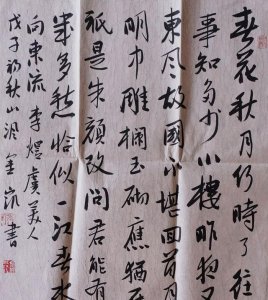 春花秋月何時了往
事知多少小樓昨夜
東风故國不堪回首月
明中雕欄玉砌應猶
祇是朱顏改問君能有
幾多愁恰似一江春水
向東流 李煜虞美人
戊子初秋山 書